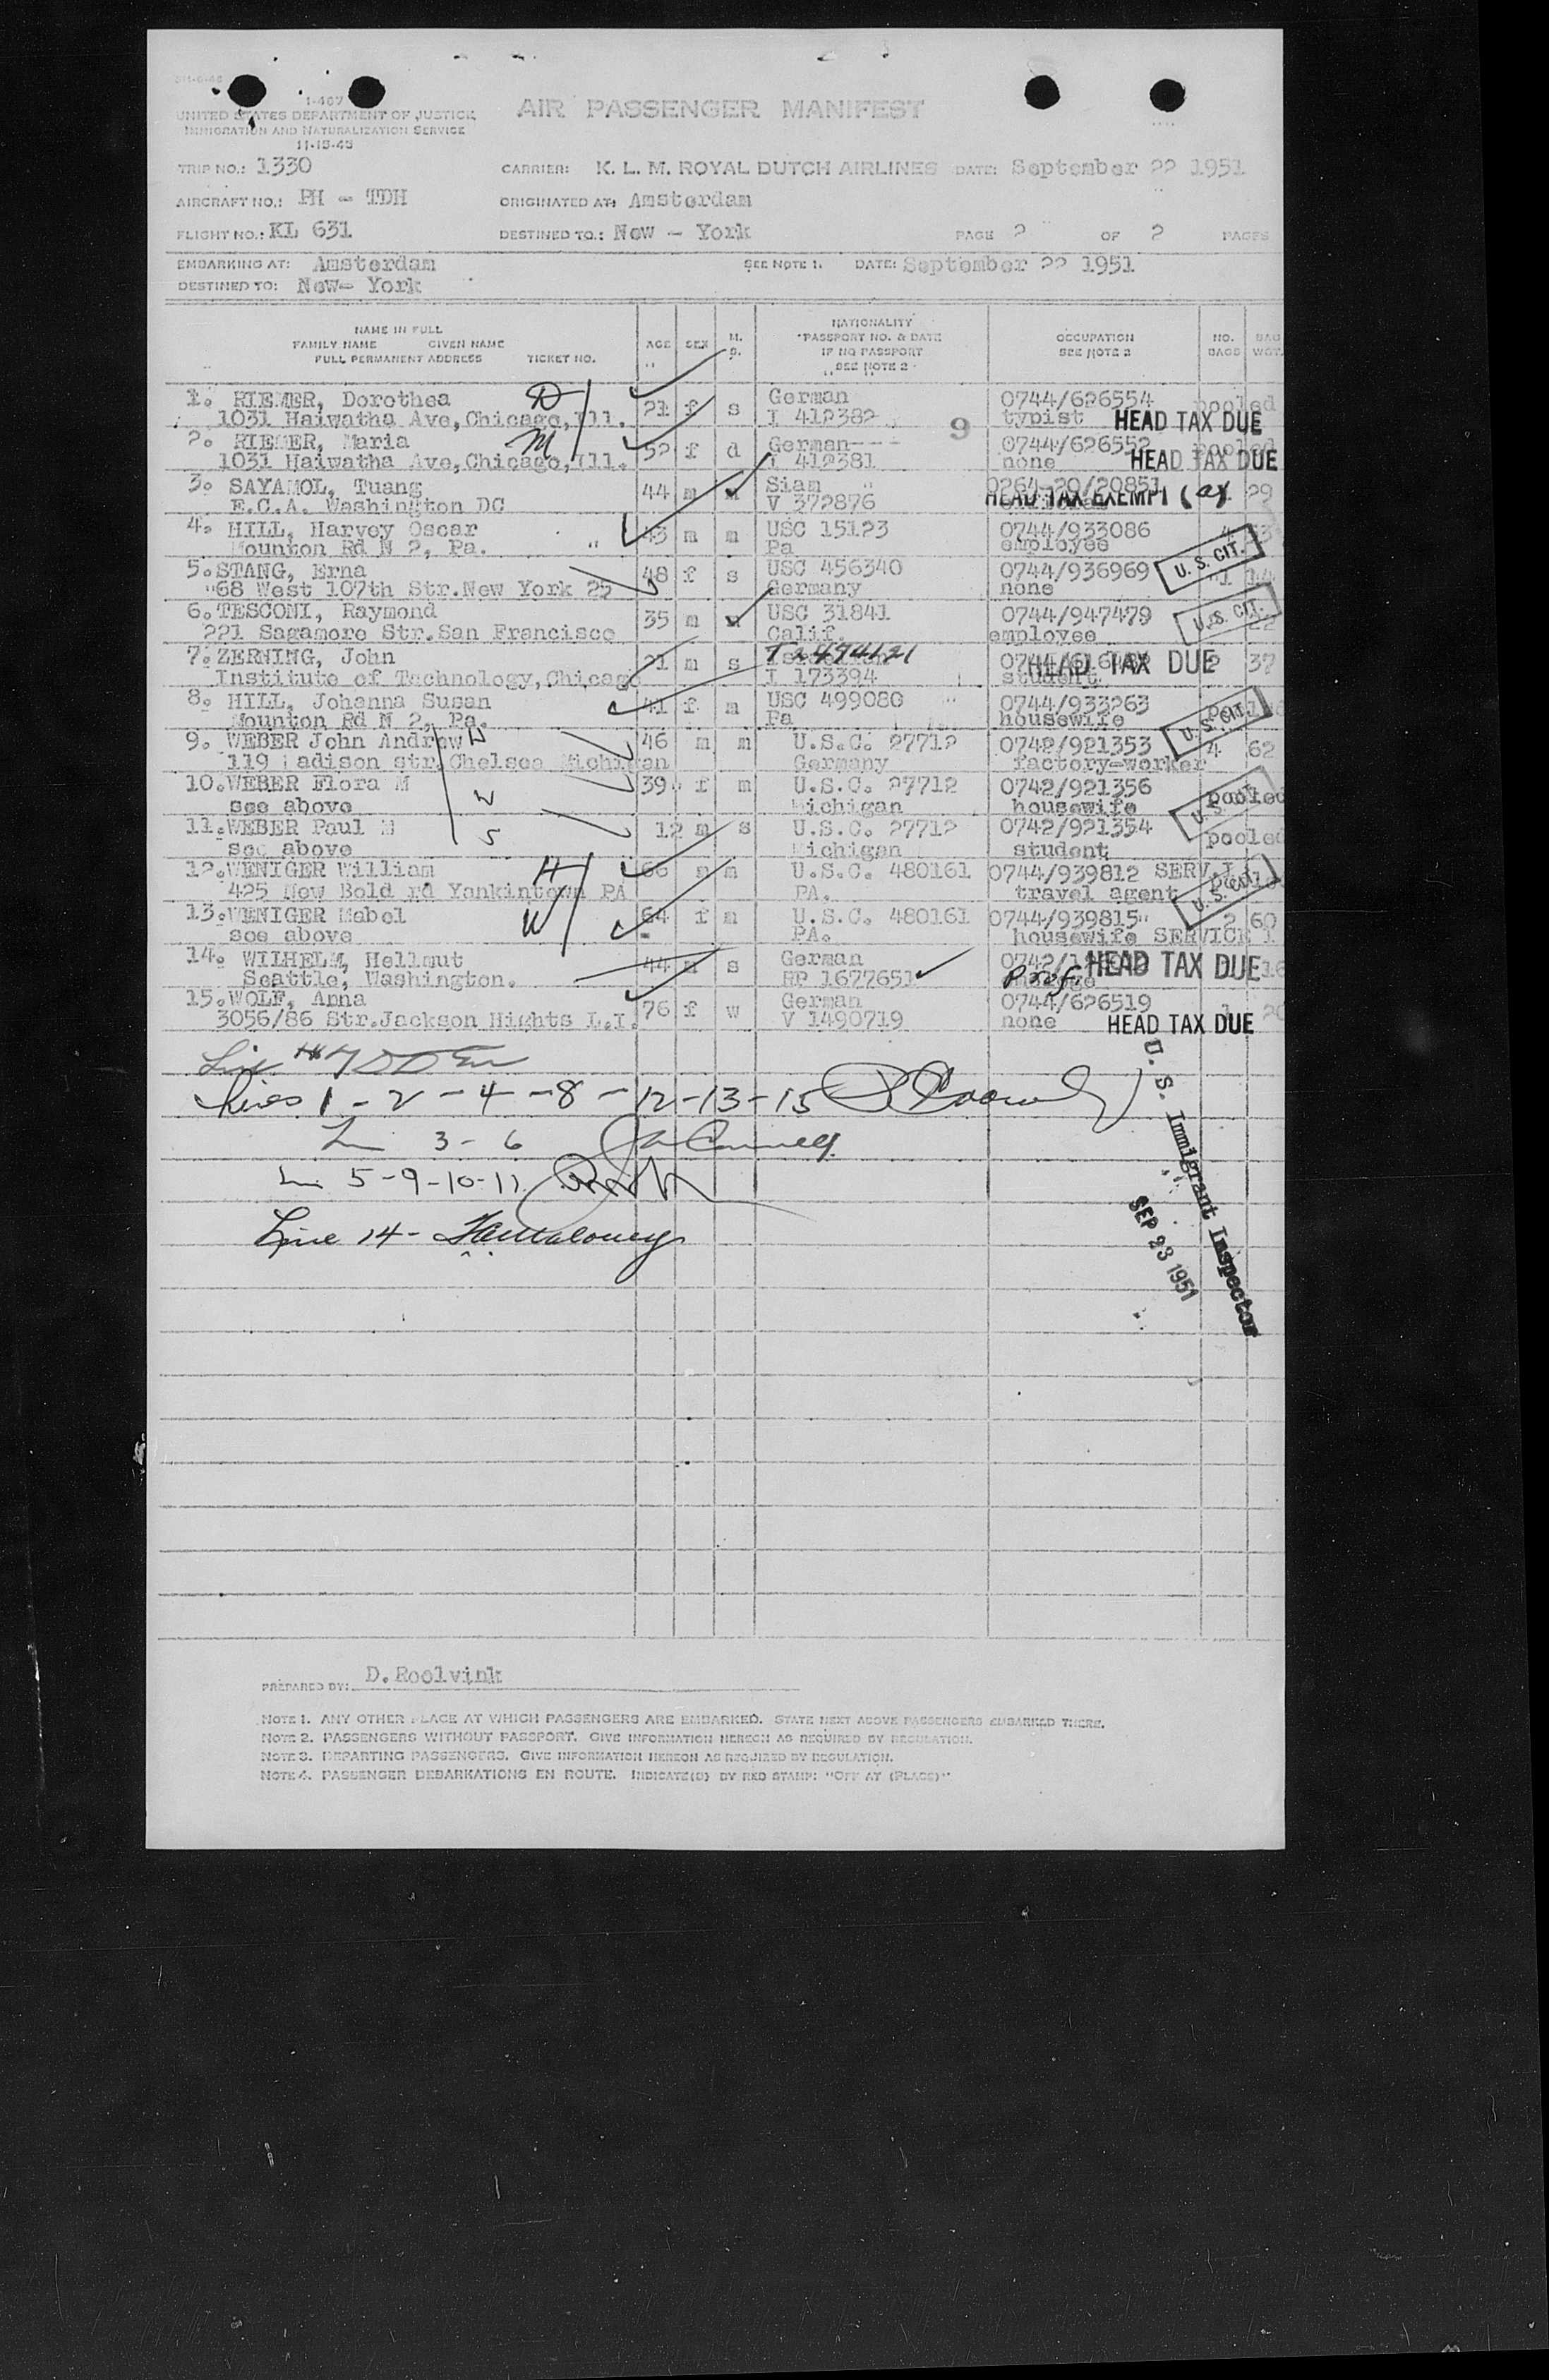 I-467
UNITED STATES DEPARTMENT OF JUSTICE
IMMIGRATION AND NATURALIZATION SERVICE
11-15-45
AIR PASSENGER MANIFEST
TRIP NO.: 1330 CARRIER: K. L. M. ROYAL DUTCH AIRLINES DATE: September 22 1951
AIRCRAFT NO.: PH - TDH ORIGINATED AT: Amsterdam
FLIGHT NO.: KL 631 DESTINED TO.: New - York PAGE 2 OF 2 PAGES
EMBARKING AT: Amsterdam SEE NOTE 1. DATE: September 22 1951
DESTINED TO: New- York
NAME IN FULL
FAMILY NAME GIVEN NAME
FULL PERMANENT ADDRESS TICKET NO.
AGE SEX M. S.
NATIONALITY
PASSPORT NO. & DATE
IF NO PASSPORT
SEE NOTE 2
OCCUPATION
SEE NOTE 3
NO. BAGS
BAG WGT.
1. RIEMER, Dorothea D 21 f s German 0744/626554 pooled
1031 Haiwatha Ave,Chicago,Ill. I 412382 9 typist HEAD TAX DUE
2. RIEMER, Maria M 52 f d German--- 0744/626552 pooled
1031 Haiwatha Ave,Chicago,Ill. I 412381 none HEAD TAX DUE
3. SAYAMOL, Tuang 44 m m Siam 0264-20/20851 29
E.C.A. Washington DC V 372876 HEAD TAX EXEMPT (a)
4. HILL, Harvey Oscar 43 m m USC 15123 0744/933086 4
Mounton Rd N 2, Pa. Pa employee U. S. CIT.
5. STANG, Erna 48 f s USC 456340 0744/936969 1 14
68 West 107th Str.New York 25 Germany none
6. TESCONI, Raymond 35 m m USC 31841 0744/947479 U. S. CIT. 22
221 Sagamore Str.San Francisco Calif. employee
7. ZERNING, John 21 m s T2474121 HEAD TAX DUE 2 37
Institute of Technology,Chicago I 173394 student
8. HILL, Johanna Susan 41 f m USC 499080 0744/933263
Mounton Rd N 2, Pa. Pa housewife U. S. CIT.
9. WEBER John Andrew 46 m m U.S.C. 27712 0742/921353 4 62
119 Madison str.Chelsea Michigan Germany factory-worker
10. WEBER Flora M W 39 f m U.S.C. 27712 0742/921356 pooled
see above Michigan housewife U. S. CIT.
11. WEBER Paul M S 12 m s U.S.C. 27712 0742/921354 pooled
see above Michigan student
12. WENIGER William H 66 m m U.S.C. 480161 0744/939812
425 New Bold rd Yankintown PA PA. travel agent U. S. CIT.
13. WENIGER Mabel W 64 f m U.S.C. 480161 0744/939815 2 60
see above PA. housewife
14. WILHELM, Hellmut 44 m s German HEAD TAX DUE
Seattle, Washington. RP 1677651 Prof.
15. WOLF, Anna 76 f w German 0744/626519
3056/86 Str.Jackson Hights L.I. V 1490719 none HEAD TAX DUE
Lines 1 - 2 - 4 - 8 - 12 - 13 - 15
3 - 6
5 - 9 - 10 - 11
Line 14 -
U. S. Immigrant Inspector
SEP 23 1951
PREPARED BY: D.Roelvink
NOTE 1. ANY OTHER PLACE AT WHICH PASSENGERS ARE EMBARKED. STATE NEXT ABOVE PASSENGERS EMBARKED THERE.
NOTE 2. PASSENGERS WITHOUT PASSPORT. GIVE INFORMATION HEREON AS REQUIRED BY REGULATION.
NOTE 3. DEPARTING PASSENGERS. GIVE INFORMATION HEREON AS REQUIRED BY REGULATION.
NOTE 4. PASSENGER DEBARKATIONS EN ROUTE. INDICATE(D) BY RED STAMP: "OFF AT (PLACE)"